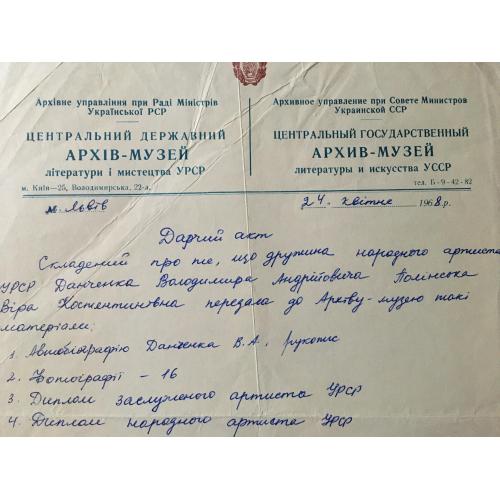 Архівне управління при Раді Міністрів
Української РСР
ЦЕНТРАЛЬНИЙ ДЕРЖАВНИЙ
АРХІВ-МУЗЕЙ
літератури і мистецтва УРСР
м. Київ—25, Володимирська, 22-а,
Архивное управление при Совете Министров
Украинской ССР
ЦЕНТРАЛЬНЫЙ ГОСУДАРСТВЕННЫЙ
АРХИВ-МУЗЕЙ
литературы и искусства УССР
тел. Б-9-42-82
м. Львів
24 квітня 1968 р.
Дарчий акт
Складений про те, що дружина народного артиста
УРСР Данченка Володимира Андрійовича Полінська
Віра Костентинівна передала до Архіву-музею такі
матеріали:
1. Автобіографію Данченка В.А. рукопис
2. Фотографії – 16
3 Диплом заслуженого артиста УРСР
4. Диплом народного артиста УРСР